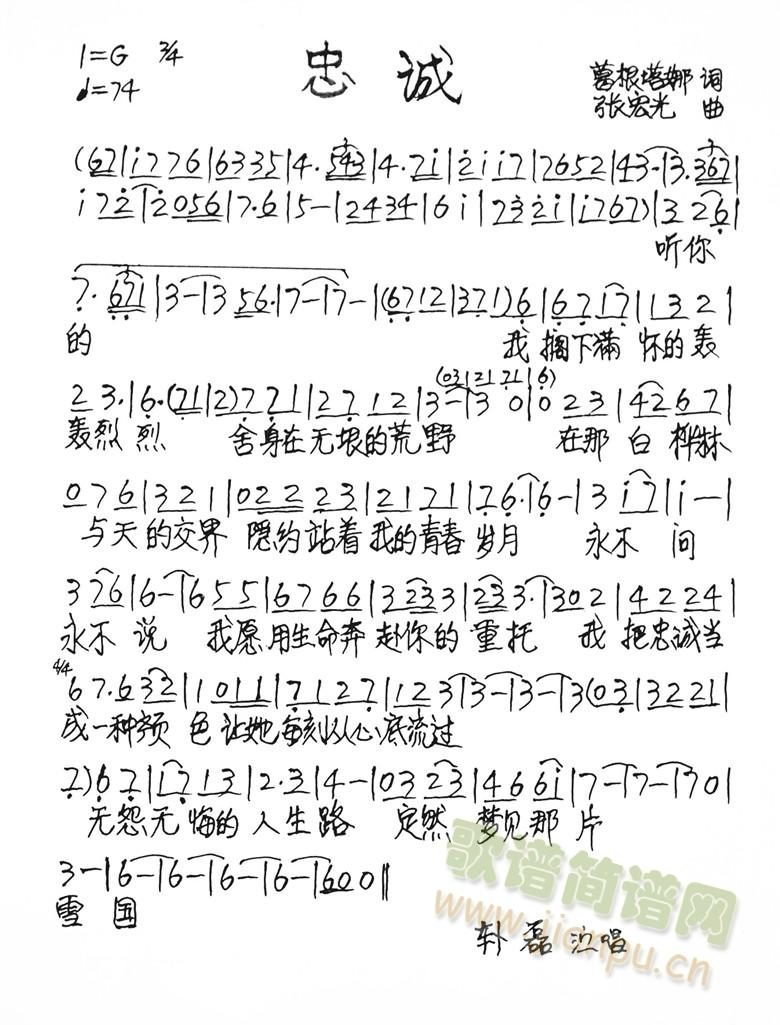 1=G 3/4
忠 诚
葛根塔娜 词
♩=74
张宏光 曲
(67|i776|6335|4·543|4·7i|2ii7|7652|43-|3·367|
i72|2056|7·6|5-|2434|6i|732i|i767)|326|
听你
7·671|3-|356·|7-|7-|(6712|371)6|67i7|1321|
的 我 捆下满 怀的轰
23·|6·(71|2)771|2712|3-|30|023|4267|
(03|2121|6)
轰烈 烈 舍身在无垠的荒野 在那 白 桦林
076|321|022223|2171|76·|6-|3i7|i-|
与天的交界 隐约站着我的青春 岁月 永不 问
376|6-|655|6766|3233|233·|302|4224|
永不 说 我愿用生命奔 赴你的 重托 我 把忠诚当
4/4
67·632|1011|7127|123|3-|3-|3(03|3221|
成一种颜 色 让她每刻从心底流过
7)67|i713|2·3|4-|0323|466i|7-|7-|70|
无怨无悔的 人生 路 定然 梦见那 片
3-|6-|6-|6-|6-|600‖
雪 国
歌谱简谱网
www.jianpu.cn
磊 唱